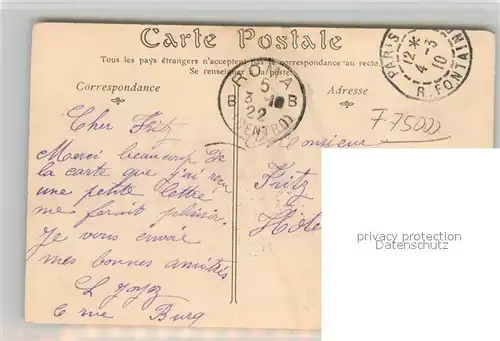 Carte Postale
Tous les pays étrangers n'acceptent pas la correspondance au recto
Se renseigner à la poste
Correspondance
Adresse
ROMA
5
3-10
B B
22
(CENTRO)
PARIS
12*
4-3
10
R. FONTAINE
F 75000
Cher Fritz
Merci beaucoup de
la carte que j'ai reçu
une petite lettre
me ferait plaisir.
Je vous envoie
mes bonnes amitiés
Monsieur
Fritz
privacy protection
Datenschutz